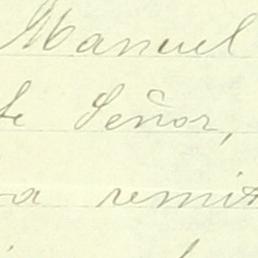 Manuel
te Señor,
a remit